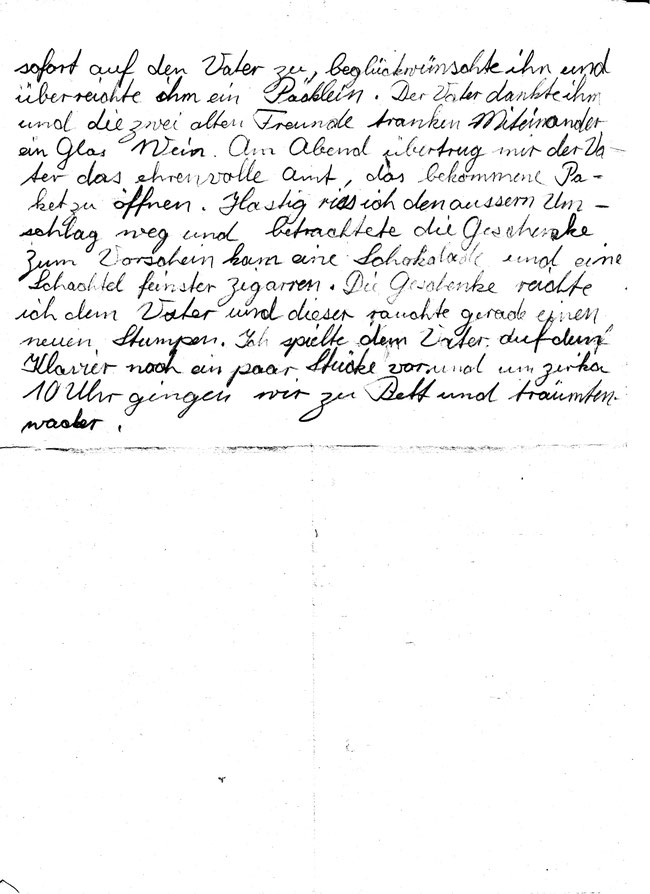 sofort auf den Vater zu, beglückwünschte ihn und
überreichte ihm ein Päcklein. Der Vater dankte ihm
und die zwei alten Freunde tranken Miteinander
ein Glas Wein. Am Abend übertrug mir der Va-
ter das ehrenvolle Amt, das bekommene Pa-
ket zu öffnen. Hastig riss ich den äussern Um-
schlag weg und betrachtete die Geschenke
Zum Vorschein kam eine Schokolade und eine
Schachtel feinster Zigarren. Die Geschenke reichte
ich dem Vater und dieser rauchte gerade einen
neuen Stumpen. Ich spielte dem Vater auf dem
Klavier noch ein paar Stücke vor und um zirka
10 Uhr gingen wir zu Bett und träumten
wacker.